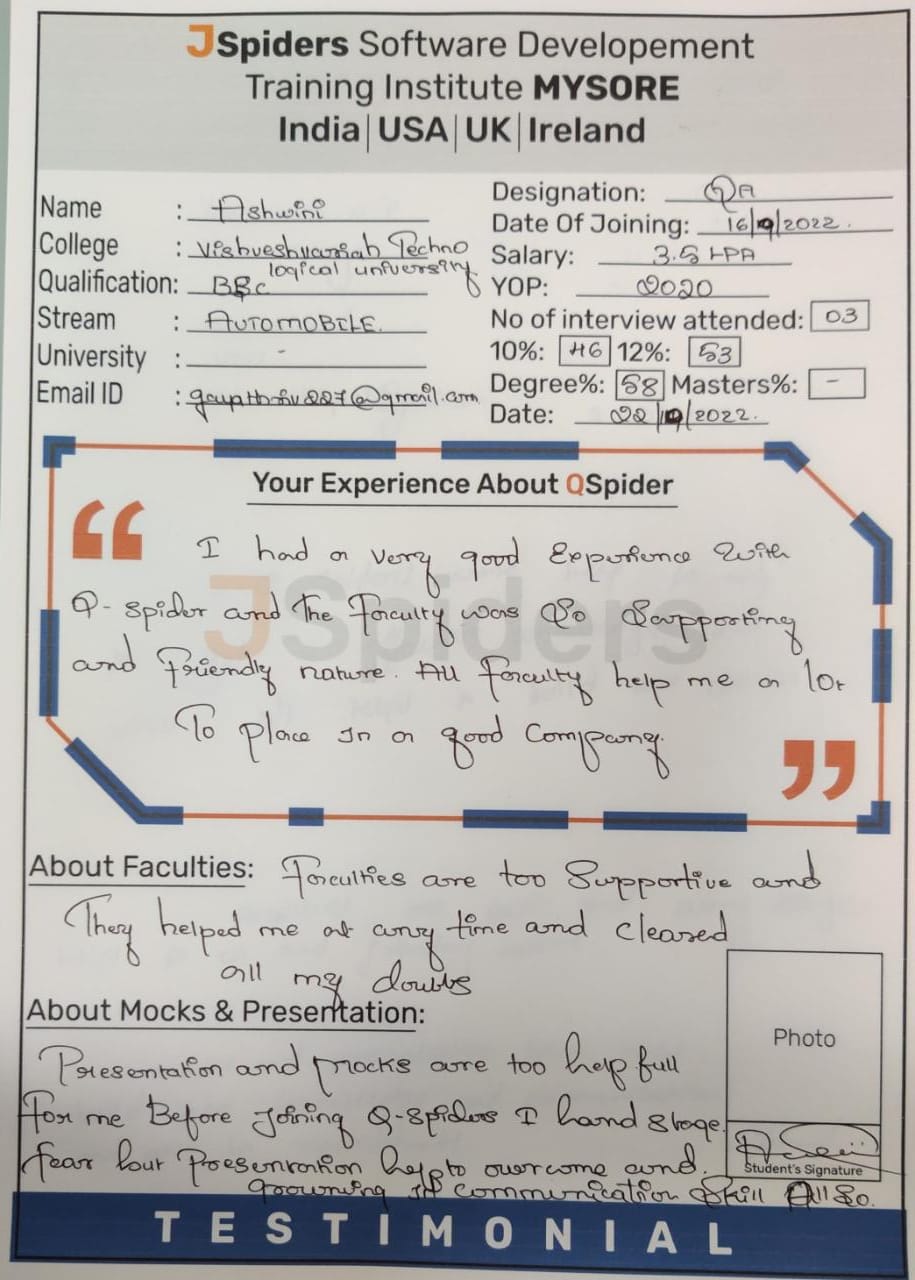 JSpiders Software Developement
Training Institute MYSORE
India|USA|UK|Ireland
Name : Ashwini
College : Vishveshvariah Techno
logical university
Qualification: BSc
Stream : AUTOMOBILE.
University : -
Email ID :
Designation: QA
Date Of Joining: 16/9/2022.
Salary: 3.5 LPA
YOP: 2020
No of interview attended: 03
10%: 46 12%: 53
Degree%: 58 Masters%: -
Date: 22/9/2022.
Your Experience About QSpider
“
I had a very good Experience with
Q-spider and The Faculty was So Supporting
and Friendly nature. All Faculty help me a lot
To place In a good Company.
”
JSpiders
About Faculties: Faculties are too Supportive and
They helped me at any time and cleared
all my doubts
About Mocks & Presentation:
Presentation and mocks are too help full
For me Before Joining Q-Spiders I hand stage
fear but Presentation help to overcome and.
growning in communication Skill All So.
Photo
Student's Signature
TESTIMONIAL